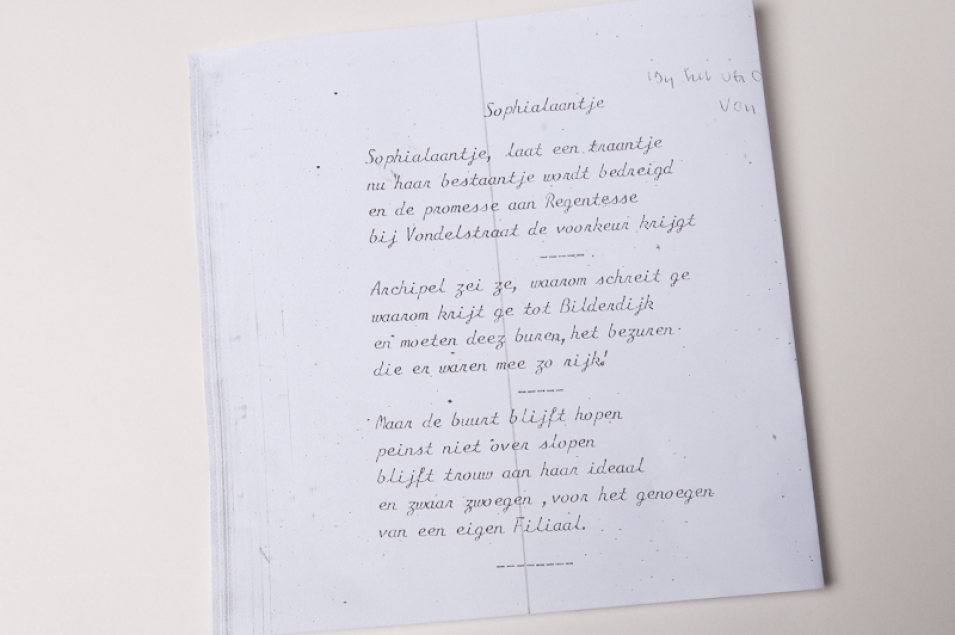 Sophialaantje
Sophialaantje, laat een traantje
nu haar bestaantje wordt bedreigd
en de promesse aan Regentesse
bij Vondelstraat de voorkeur krijgt
Archipel zei ze, waarom schreit ge
waarom krijt ge tot Bilderdijk
en moeten deez buren, het bezuren.
die er waren mee zo rijk!
Maar de buurt blijft hopen
peinst niet over slopen
blijft trouw aan haar ideaal
en zwaar zwoegen, voor het genoegen
van een eigen Filiaal.